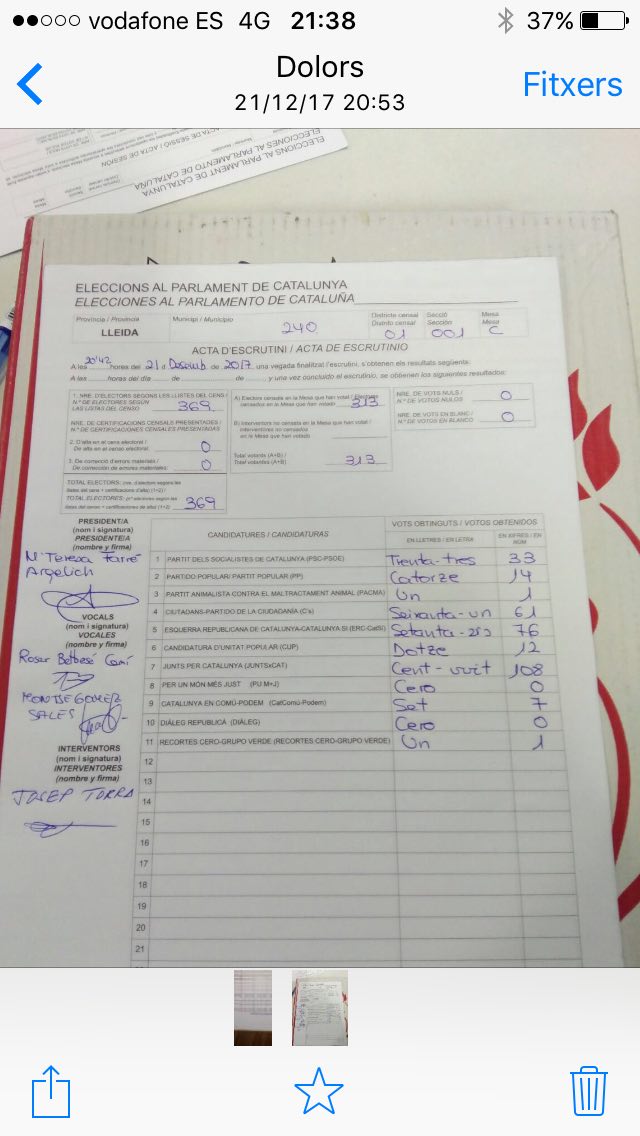 vodafone ES 4G 21:38 37%
Dolors
21/12/17 20:53
Fitxers
ELECCIONES AL PARLAMENTO DE CATALUÑA
ELECCIONS AL PARLAMENT DE CATALUNYA
ACTA DE SESSIÓ / ACTA DE SESIÓN
ELECCIONS AL PARLAMENT DE CATALUNYA
ELECCIONES AL PARLAMENTO DE CATALUÑA
Província / Provincia Municipi / Municipio Districte censal Secció Mesa
Distrito censal Sección Mesa
LLEIDA 240 01 001 C
ACTA D'ESCRUTINI / ACTA DE ESCRUTINIO
A les 20'42 hores del 21 d Desemb. de 2017, una vegada finalitzat l'escrutini, s'obtenen els resultats següents:
A las hores del día de de , y una vez concluido el escrutinio, se obtienen los siguientes resultados:
1. NRE. D'ELECTORS SEGONS LES LLISTES DEL CENS /
N.º DE ELECTORES SEGÚN
LAS LISTAS DEL CENSO 369
NRE. DE CERTIFICACIONS CENSALS PRESENTADES /
N.º DE CERTIFICACIONES CENSALES PRESENTADAS
2. D'alta en el cens electoral /
De alta en el censo electoral: 0
3. De correcció d'errors materials /
De corrección de errores materiales: 0
TOTAL ELECTORS: (nre. d'electors segons les
llistes del cens + certificacions d'alta) (1+2) /
TOTAL ELECTORES: (nº electores según las
listas del censo + certificaciones de alta) (1+2) 369
A) Electors censats en la Mesa que han votat / Electores
censados en la Mesa que han votado 313
B) Interventors no censats en la Mesa que han votat /
Interventores no censados
en la Mesa que han votado
Total votants (A+B) /
Total votantes (A+B) 313
NRE. DE VOTS NULS /
N.º DE VOTOS NULOS 0
NRE. DE VOTS EN BLANC /
N.º DE VOTOS EN BLANCO 0
PRESIDENT/A
(nom i signatura)
PRESIDENTE/A
(nombre y firma)
Mª Teresa Farré
Argelich
VOCALS
(nom i signatura)
VOCALES
(nombre y firma)
Roser
MONTSE GOMEZ
SALES
INTERVENTORS
(nom i signatura)
INTERVENTORES
(nombre y firma)
JOSEP TORRA
CANDIDATURES / CANDIDATURAS VOTS OBTINGUTS / VOTOS OBTENIDOS
EN LLETRES / EN LETRA EN XIFRES / EN NÚM
1 PARTIT DELS SOCIALISTES DE CATALUNYA (PSC-PSOE) Trenta-tres 33
2 PARTIDO POPULAR/ PARTIT POPULAR (PP) Catorze 14
3 PARTIT ANIMALISTA CONTRA EL MALTRACTAMENT ANIMAL (PACMA) Un 1
4 CIUTADANS-PARTIDO DE LA CIUDADANÍA (C's) Seixanta-un 61
5 ESQUERRA REPUBLICANA DE CATALUNYA-CATALUNYA SÍ (ERC-CatSí) Setanta-sis 76
6 CANDIDATURA D'UNITAT POPULAR (CUP) Dotze 12
7 JUNTS PER CATALUNYA (JUNTSxCAT) Cent-vuit 108
8 PER UN MÓN MÉS JUST (PUM+J) Cero 0
9 CATALUNYA EN COMÚ-PODEM (CatComú-Podem) Set 7
10 DIÀLEG REPUBLICÀ (DIÀLEG) Cero 0
11 RECORTES CERO-GRUPO VERDE (RECORTES CERO-GRUPO VERDE) Un 1
12
13
14
15
16
17
18
19
20
21